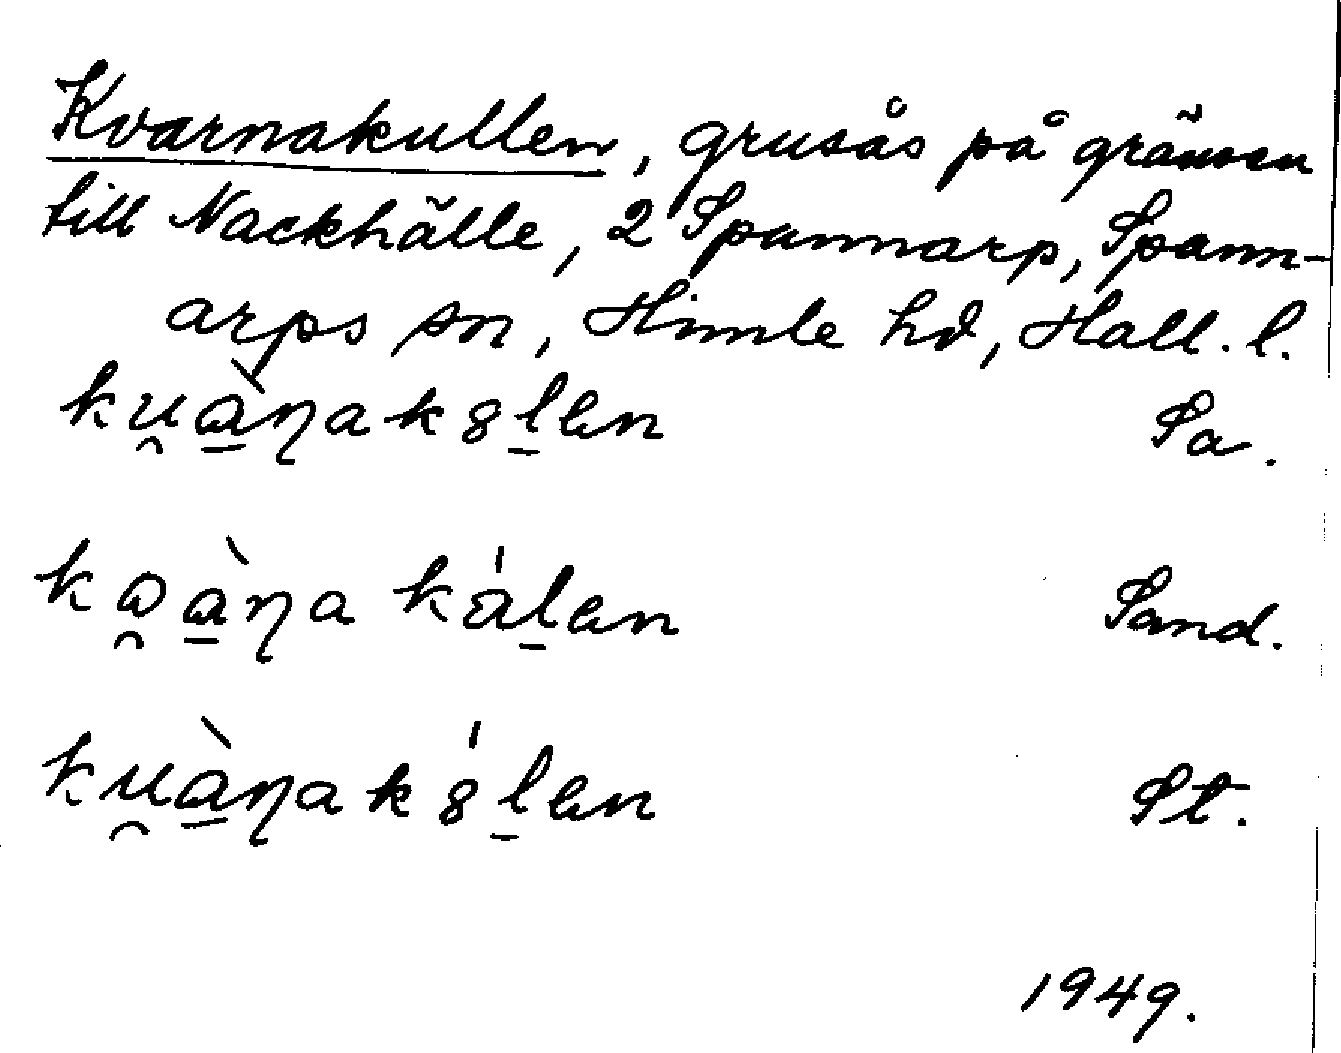 Kvarnakullen, grusås på gränsen
till Nackhälle, 2 Spannarp, Spann-
arps sn, Himle hd, Hall. l.
ku̯à̱ɳak8ḻen Sa.
kɷ̯à̱ɳa kα̍ḻen Sand.
ku̯à̱ɳak8̍ḻen St.
1949.